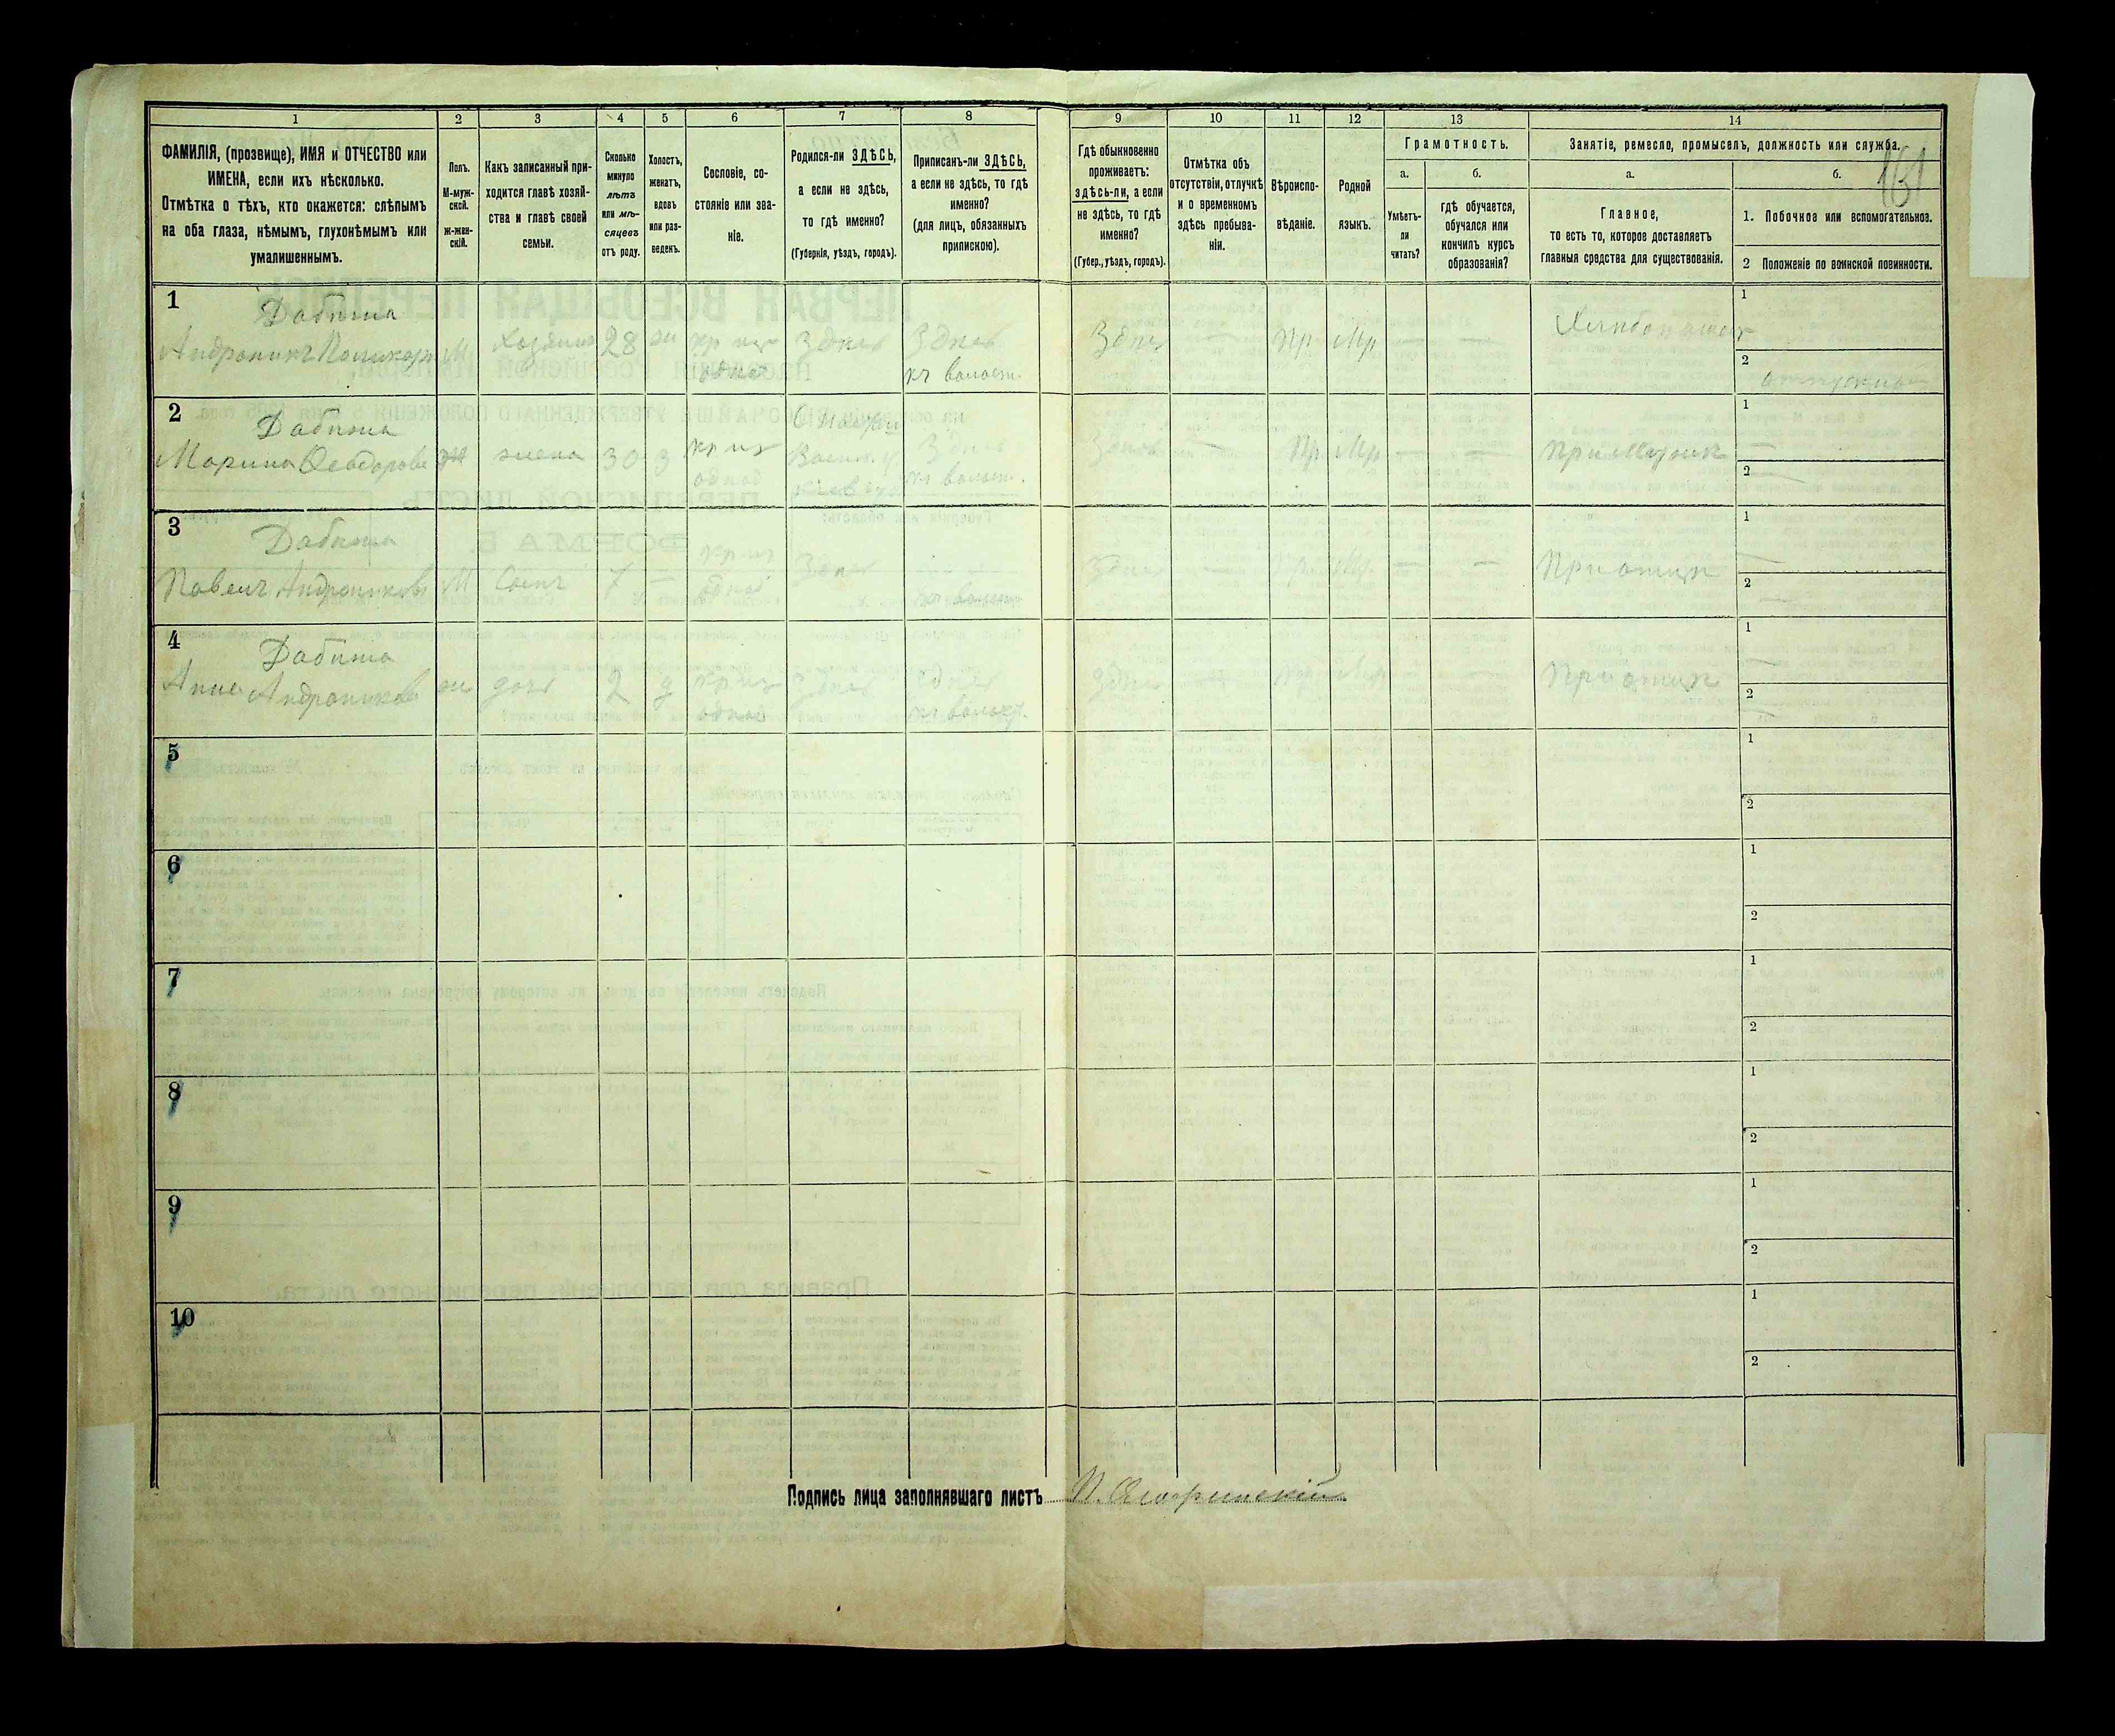 1 2 3 4 5 6 7 8 9 10 11 12 13 14
ФАМИЛІЯ, (прозвище), ИМЯ и ОТЧЕСТВО или
ИМЕНА, если ихъ нѣсколько.
Отмѣтка о тѣхъ, кто окажется: слѣпымъ
на оба глаза, нѣмымъ, глухонѣмымъ или
умалишеннымъ.
Полъ.
М-муж-
ской.
Ж-жен-
скій.
Какъ записанный при-
ходится главѣ хозяй-
ства и главѣ своей
семьи.
Сколько
минуло
лѣтъ
или мѣ-
сяцевъ
отъ роду.
Холостъ,
женатъ,
вдовъ
или раз-
веденъ.
Сословіе, со-
стояніе или зва-
ніе.
Родился-ли ЗДѢСЬ,
а если не здѣсь,
то гдѣ именно?
(Губернія, уѣздъ, городъ).
Приписанъ-ли ЗДѢСЬ,
а если не здѣсь, то гдѣ
именно?
(для лицъ, обязанныхъ
припискою).
Гдѣ обыкновенно
проживаетъ:
здѣсь-ли, а если
не здѣсь, то гдѣ
именно?
(Губер., уѣздъ, городъ).
Отмѣтка объ
отсутствіи, отлучкѣ
и о временномъ
здѣсь пребыва-
ніи.
Вѣроиспо-
вѣданіе.
Родной
языкъ.
Грамотность.
а.
Умѣетъ-
ли
читать?
б.
гдѣ обучается,
обучался или
кончилъ курсъ
образованія?
Занятіе, ремесло, промыселъ, должность или служба.
а.
Главное,
то есть то, которое доставляетъ
главныя средства для существованія.
б.
1. Побочное или вспомогательное.
2 Положеніе по воинской повинности.
1
Дабижа
Андроникъ Поликарп М Хозяинъ 28 ж кр из Здесь Здесь Здесь — Пр Мр — —
къ волост.
1
2
2
Дабижа
Марина Феодорова ж жена 30 з кр из Здесь Здесь — Пр Мр — — При муж
одной къ волост.
1 —
2 —
3
Дабижа
Павелъ Андрониковъ М Сынъ 7 — кр из Здесь Здесь — Пр Мр — — При отц
одной къ волост.
1 —
2 —
4
Дабижа
Анна Андроникова ж дочь 2 д кр из Здесь Здесь Здесь — — При отц
одной къ волост.
1 —
2 —
5
1
2
6
1
2
7
1
2
8
1
2
9
1
2
10
1
2
Подпись лица заполнявшаго листъ